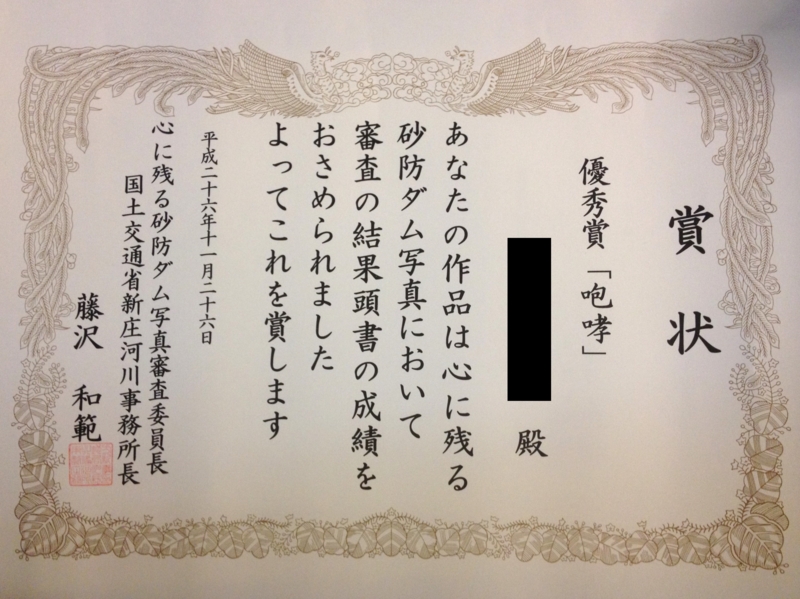 賞状
優秀賞「咆哮」
殿
あなたの作品は心に残る
砂防ダム写真において
審査の結果頭書の成績を
おさめられました
よってこれを賞します
平成二十六年十一月二十六日
心に残る砂防ダム写真審査委員長
国土交通省新庄河川事務所長
藤沢 和範